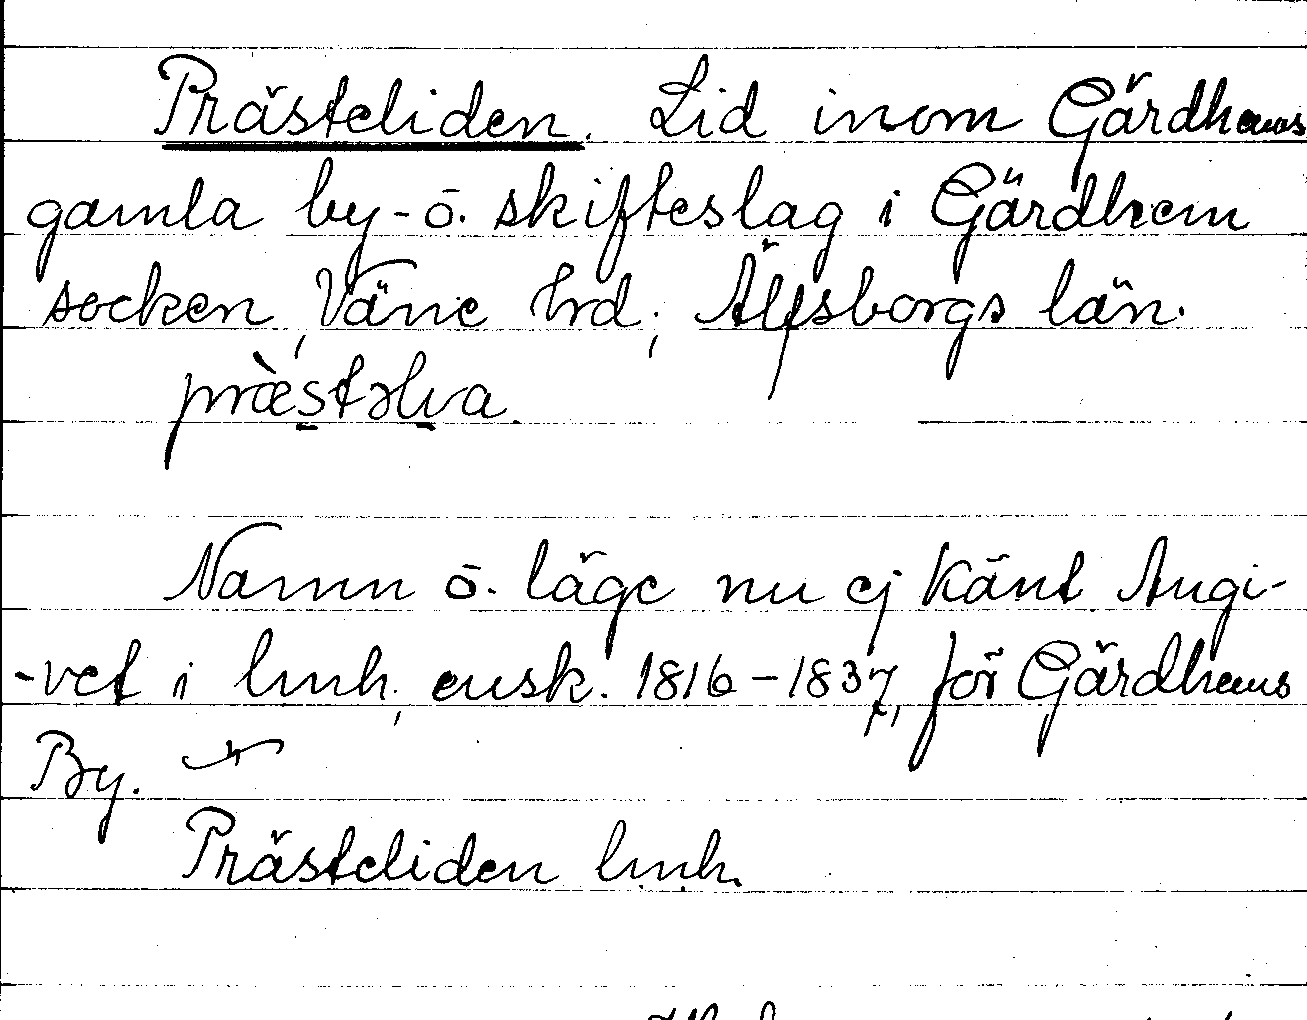 Prästeliden. Lid inom Gärdhems
gamla by- o. skifteslag i Gärdhem
socken, Väne hrd, Älfsborgs län.
præ̀stəlia.
Namn o. läge nu ej känt Angi-
-vet i lmh, ensk. 1816-1837, för Gärdhems
By.
Prästeliden lmh.